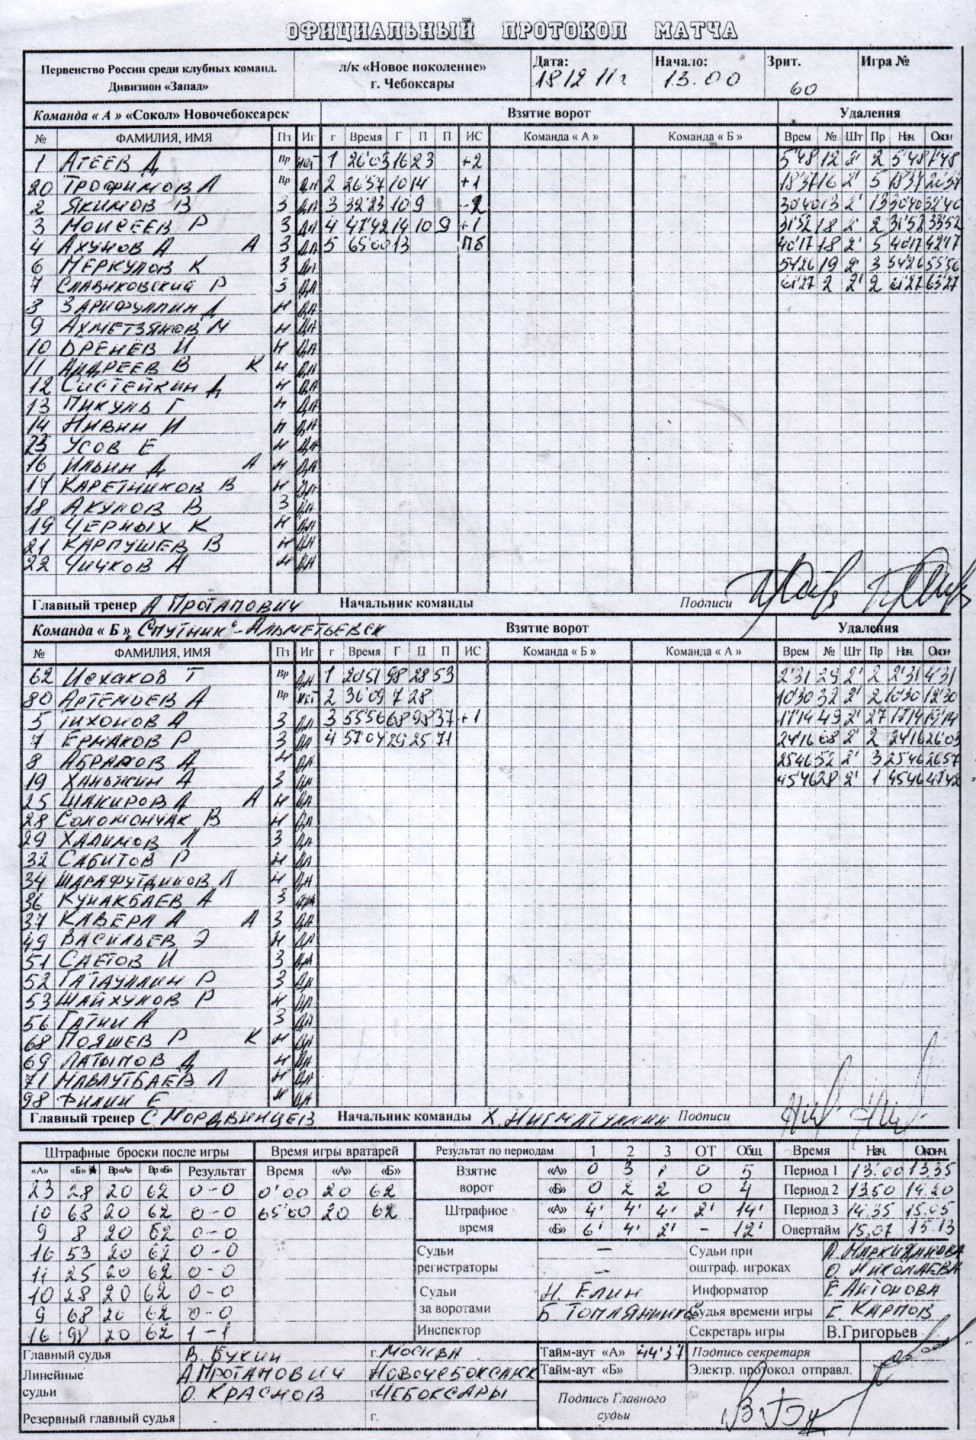 ОФИЦИАЛЬНЫЙ ПРОТОКОЛ МАТЧА
Первенство России среди клубных команд. Дивизион «Запад» л/к «Новое поколение» г. Чебоксары Дата: 18 12 11г Начало: 13.00 Зрит. 60 Игра №
Команда « А » «Сокол» Новочебоксарск Взятие ворот Удаления
№ ФАМИЛИЯ, ИМЯ Пз Иг г Время Г П П ИС Команда « А » Команда « Б » Врем № Шт Пр Нач. Окон
1 Агеев Д Вр 1 26'03 16 23 +2 5'48 12 2' 2 5'48 7'48
20 Трофимов А Вр 2 26'57 10 14 +1 18'37 16 2' 5 18'37 20'37
2 Якимов В З 3 32'23 10 9 30'40 13 2' 13 30'40 32'40
3 Моисеев Р З 4 47'42 14 10 9 +1 31'52 18 2' 2 31'52 33'52
4 Ахунов А А З 5 65'00 13 ПБ 40'17 18 2' 5 40'17 42'17
6 Меркулов К З 54'26 19 2' 3 54'26 55'56
7 Славиковский Р З 61'27 2 2' 2 61'27 63'27
8 Зарифуллин Д Н
9 Ахметзянов М Н
10 Дренёв И Н
11 Андреев В К Н
12 Систейкин Д Н
13 Пикуль Г Н
14 Нивин И Н
23 Усов Е Н
16 Ильин Д А Н
17 Каретников В Н
18 Акулов В З
19 Черных К Н
21 Карпушев В Н
22 Чичков А Н
Главный тренер А Протапович Начальник команды Подписи
Команда « Б » Спутник - Альметьевск Взятие ворот Удаления
№ ФАМИЛИЯ, ИМЯ Пз Иг г Время Г П П ИС Команда « Б » Команда « А » Врем № Шт Пр Нач. Окон
62 Исхаков Т Вр 1 20'51 98 28 53 2'31 29 2' 2 2'31 4'31
80 Артемьев А Вр 2 36'09 7 28 10'30 32 2' 2 10'30 12'30
5 Тихонов А З 3 55'56 68 98 37 +1 17'14 49 2' 27 17'14 19'14
7 Ермаков Р З 4 57'04 29 25 71 24'16 68 2' 2 24'16 26'03
8 Абрамов А Н 25'46 52 2' 3 25'46 26'57
19 Ханьжин А З 45'46 28 2' 1 45'46 47'42
25 Шакиров А А Н
28 Соломончак В Н
29 Халимов Л З
32 Сабитов Р Н
34 Шарафутдинов Л Н
36 Кунакбаев А З
37 Каверл А А З
49 Васильев Э Н
51 Саетов И З
52 Гатауллин Р З
53 Шайхулов Р Н
56 Гатин А З
68 Пояшев Р К Н
69 Латыпов Д Н
71 Мавлутбаев Л Н
98 Филин Е Н
Главный тренер С. Мордвинцев Начальник команды Х. Нигматуллин Подписи
Штрафные броски после игры Время игры вратарей Результат по периодам 1 2 3 ОТ Общ. Время Нач. Оконч.
«А» «Б» Вр«А» Вр«Б» Результат Время «А» «Б» Взятие ворот «А» 0 3 1 0 5 Период 1 13.00 13.35
23 28 20 62 0-0 0'00 20 62 «Б» 0 2 2 0 4 Период 2 13.50 14.20
10 68 20 62 0-0 65'00 20 62 Штрафное время «А» 4' 4' 4' 2' 14' Период 3 14.35 15.05
9 8 20 62 0-0 «Б» 6' 4' 2' - 12' Овертайм 15.07 15.13
16 53 20 62 0-0 Судьи регистраторы — — Судьи при оштраф. игроках О. Николаева
11 25 20 62 0-0
10 28 20 62 0-0 Судьи за воротами Н. Елин Информатор Е Антонова
9 68 20 62 0-0 Б Топлянников Судья времени игры Е Карпов
16 98 20 62 1-1 Инспектор Секретарь игры В.Григорьев
Главный судья В. Букин г. Москва Тайм-аут «А» 44'37 Подпись секретаря
Линейные судьи А Протапович Новочебоксарск Тайм-аут «Б» Электр. протокол отправл.
О. Краснов г. Чебоксары Подпись Главного судьи
Резервный главный судья г.